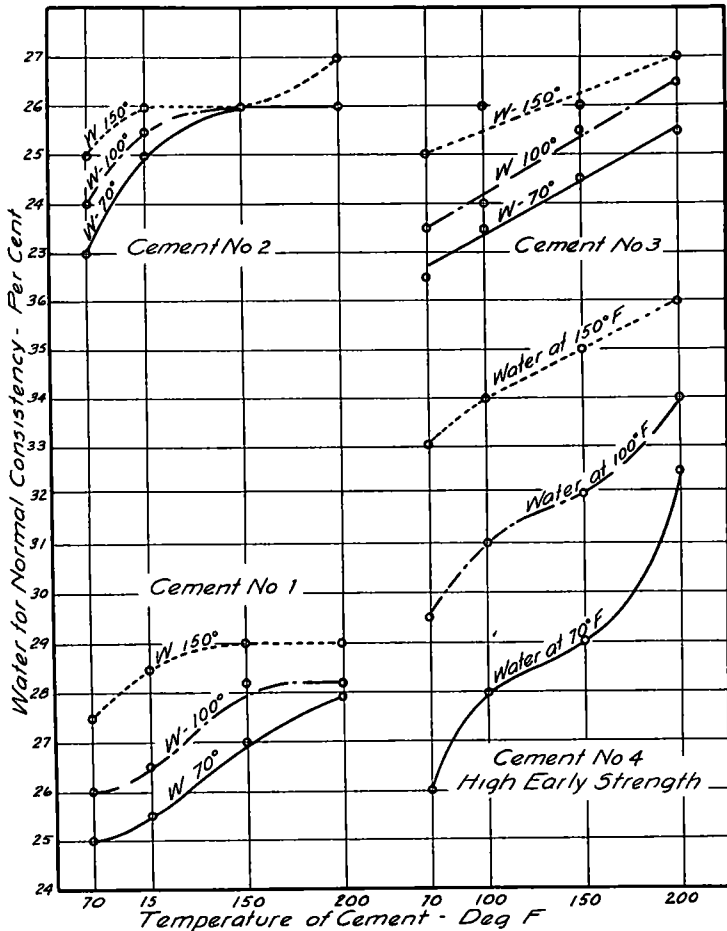 Water for Normal Consistency - Per Cent
27
26
25
24
23
36
35
34
33
32
31
30
29
28
27
26
25
24
W 150°
W-100°
W-70°
Cement No 2
W-150°
W 100°
W-70°
Cement No 3
Water at 150°F
Water at 100°F
Water at 70°F
Cement No 4
High Early Strength
Cement No 1
W 150°
W-100°
W 70°
70 15 150 200 70 100 150 200
Temperature of Cement - Deg F